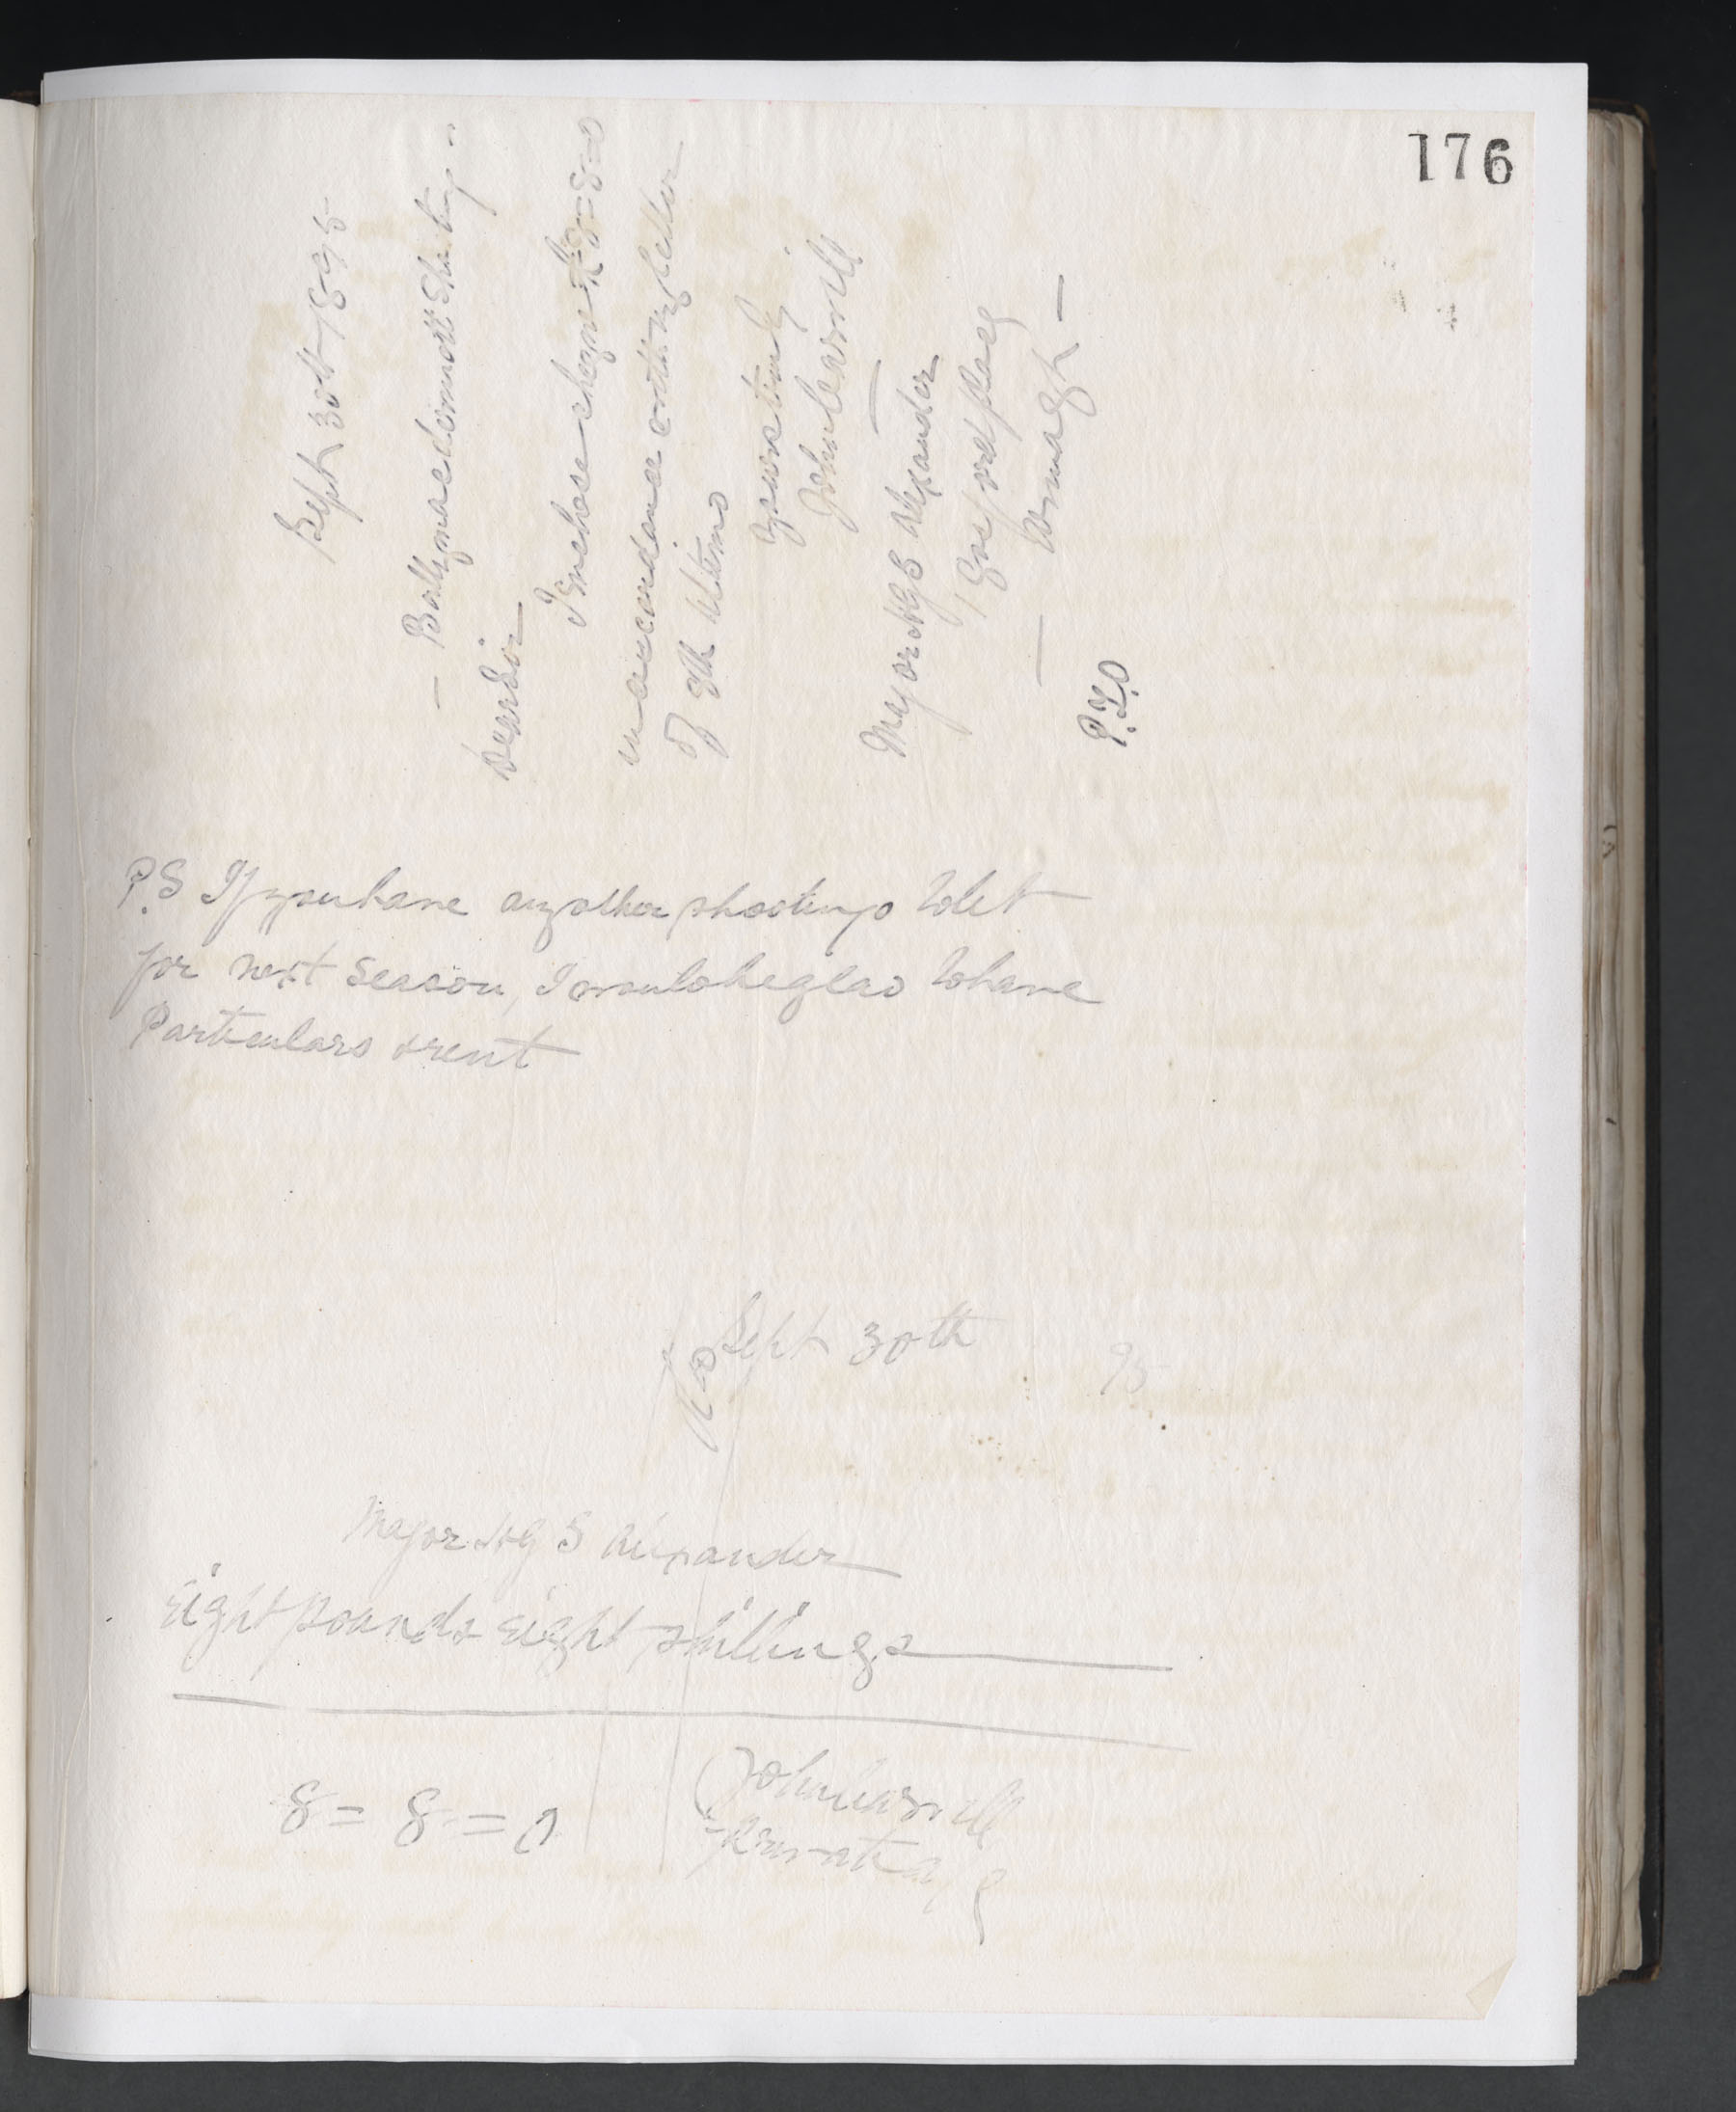 176
Sept 30th 1895
— Ballymacdermott Shooting —
Dear Sir
I enclose cheque £8=8=0
in accordance with my letter
of 9th Ultimo
Yours truly
John
Major H G S Alexander
1 Gosford Place
Armagh —
P.T.O
P.S If you have any other shootings to let
for next season, I would be glad to have
Particulars & rent
Sept 30th 95
Major H G S Alexander
Eight pounds eight shillings
8=8=0
John
Private a/c